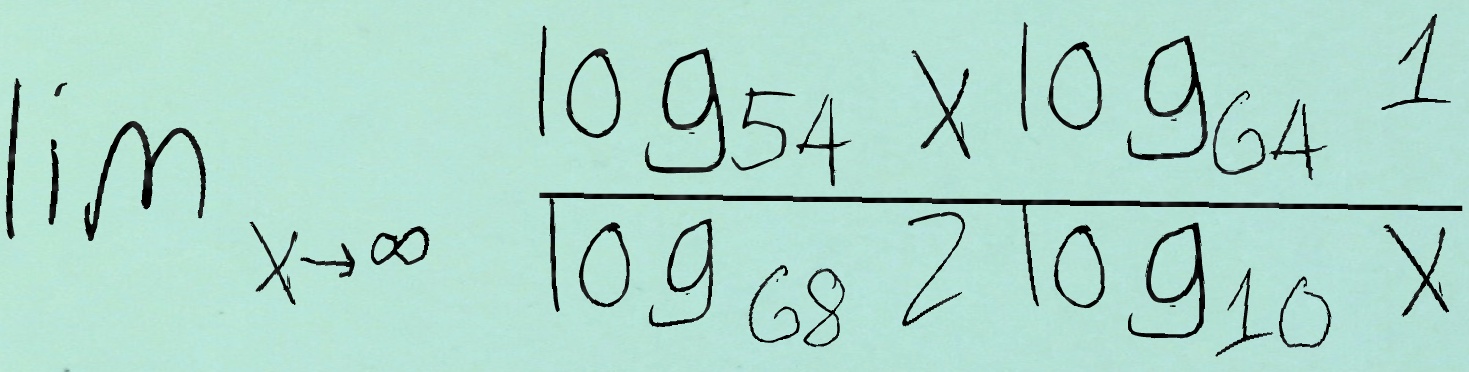 \lim_{x \to \infty} \frac{\log_{54} x \log_{64} 1}{\log_{68} 2 \log_{10} x}